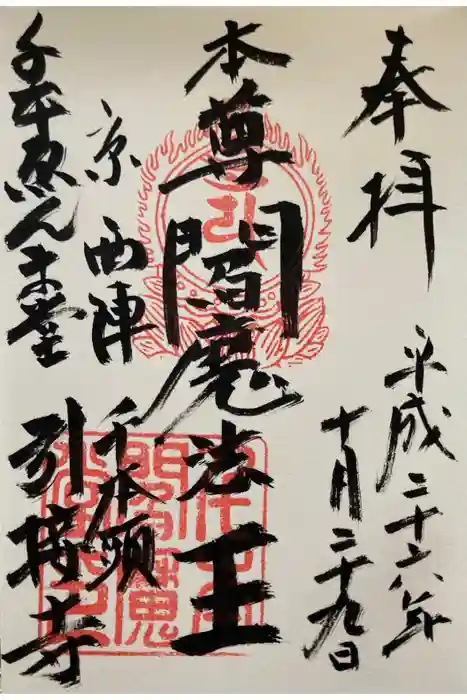 奉拝
平成二十六年
十月二十九日
本尊閻魔法王
京西陣
千本頭
千本ゑんま堂
引接寺